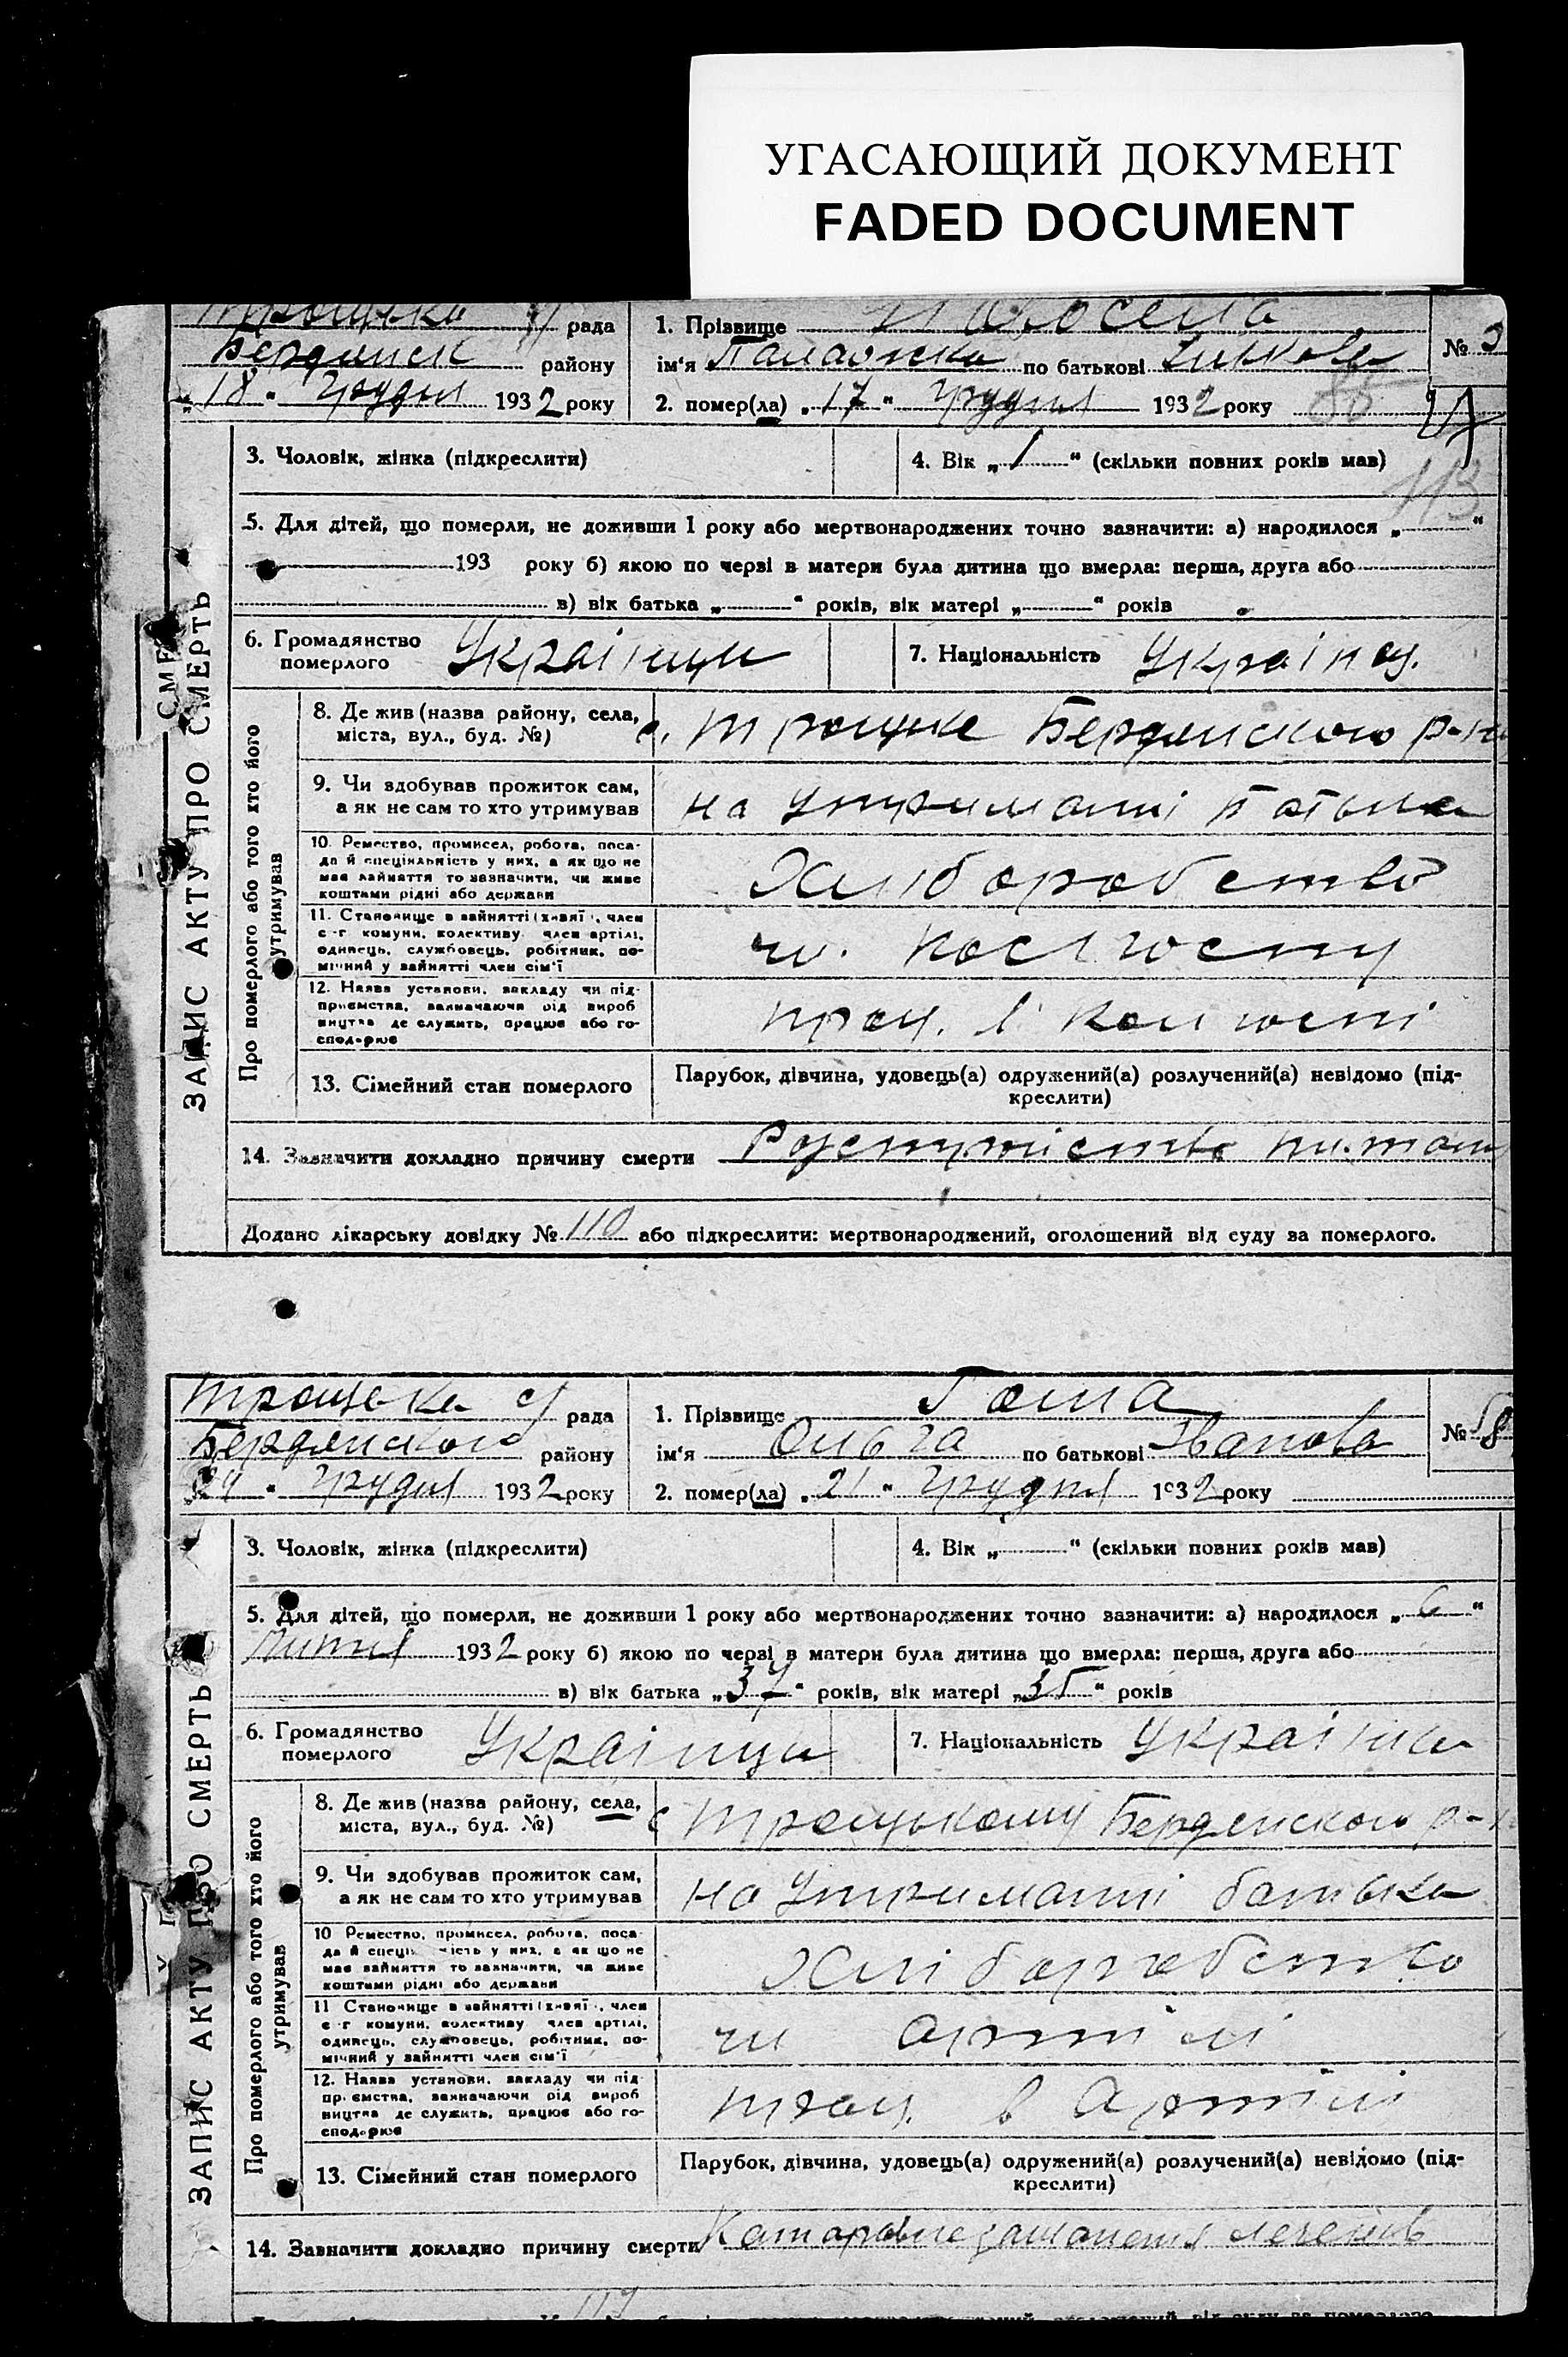 УГАСАЮЩИЙ ДОКУМЕНТ
FADED DOCUMENT
рада
района
району
„18“ Грудня 1932 року
1. Прізвище
ім‘я по батькові
2. помер(ла) „17“ Грудня 1932 року
№
85
113
3. Чоловік, жінка (підкреслити)
4. Вік „1“ (скільки повних років мав)
5. Для дітей, що померли, не доживши 1 року або мертвонароджених точно зазначити: а) народилося „ “
193 року б) якою по черзі в матери була дитина що вмерла: перша, друга або
в) вік батька „ “ років, вік матері „ “ років
6. Громадянство померлого
Українци
7. Національність
Українц.
ЗАПИС АКТУ ПРО СМЕРТЬ
Про померлого або того хто його утримував
8. Де жив (назва району, села,
міста, вул., буд. №)
Бердянського р-н
9. Чи здобував прожиток сам,
а як не сам то хто утримував
на утриманні батька
10. Ремество, промисел, робота, поса-
да й спеціяльність у них, а як що не
має зайняття то зазначити, чи живе
коштами рідні або держави
Хліборобство
11. Становище в зайнятті (хазяї , член
с-г комуни, колективу член артілі,
одинець, службовець, робітник, по-
мічний у зайнятті член сім‘ї
чл.
12. Назва установи, закладу чи під-
приємства, зазначаючи рід вироб
ництва де служить, працює або го-
сподарює
прац. в
13. Сімейний стан померлого
Парубок, дівчина, удовець(а) одружений(а) розлучений(а) невідомо (під-
креслити)
14. Зазначити докладно причину смерти
Додано лікарську довідку № 110 або підкреслити: мертвонароджений, оголошений від суду за померлого.
рада
Бердянського району
Грудня 1932 року
1. Прізвище
ім‘я Ольга по батькові Іванова
2. помер(ла) „21“ Грудня 1932 року
№ 58
3. Чоловік, жінка (підкреслити)
4. Вік „ “ (скільки повних років мав)
5. Для дітей, що померли, не доживши 1 року або мертвонароджених точно зазначити: а) народилося „6“
1932 року б) якою по черзі в матери була дитина що вмерла: перша, друга або
в) вік батька „37“ років, вік матері „35“ років
6. Громадянство померлого
Українци
7. Національність
Українка
ЗАПИС АКТУ ПРО СМЕРТЬ
Про померлого або того хто його утримував
8. Де жив (назва району, села,
міста, вул., буд. №)
с Троцькому Бердянського р-н
9. Чи здобував прожиток сам,
а як не сам то хто утримував
на утриманні батька
10 Ремество, промисел, робота, поса-
да й спеціяльність у них, а як що не
має зайняття то зазначити, чи живе
коштами рідні або держави
Хліборобство
11 Становище в зайнятті (хазяї , член
с-г комуни, колективу член артілі,
одинець, службовець, робітник, по-
мічний у зайнятті член сім‘ї
чл артілі
12. Назва установи, закладу чи під-
приємства, зазначаючи рід вироб
ництва де служить, працює або го-
сподарює
прац. в артілі
13. Сімейний стан померлого
Парубок, дівчина, удовець(а) одружений(а) розлучений(а) невідомо (під-
креслити)
14. Зазначити докладно причину смерти Катаральне запаленя легенів